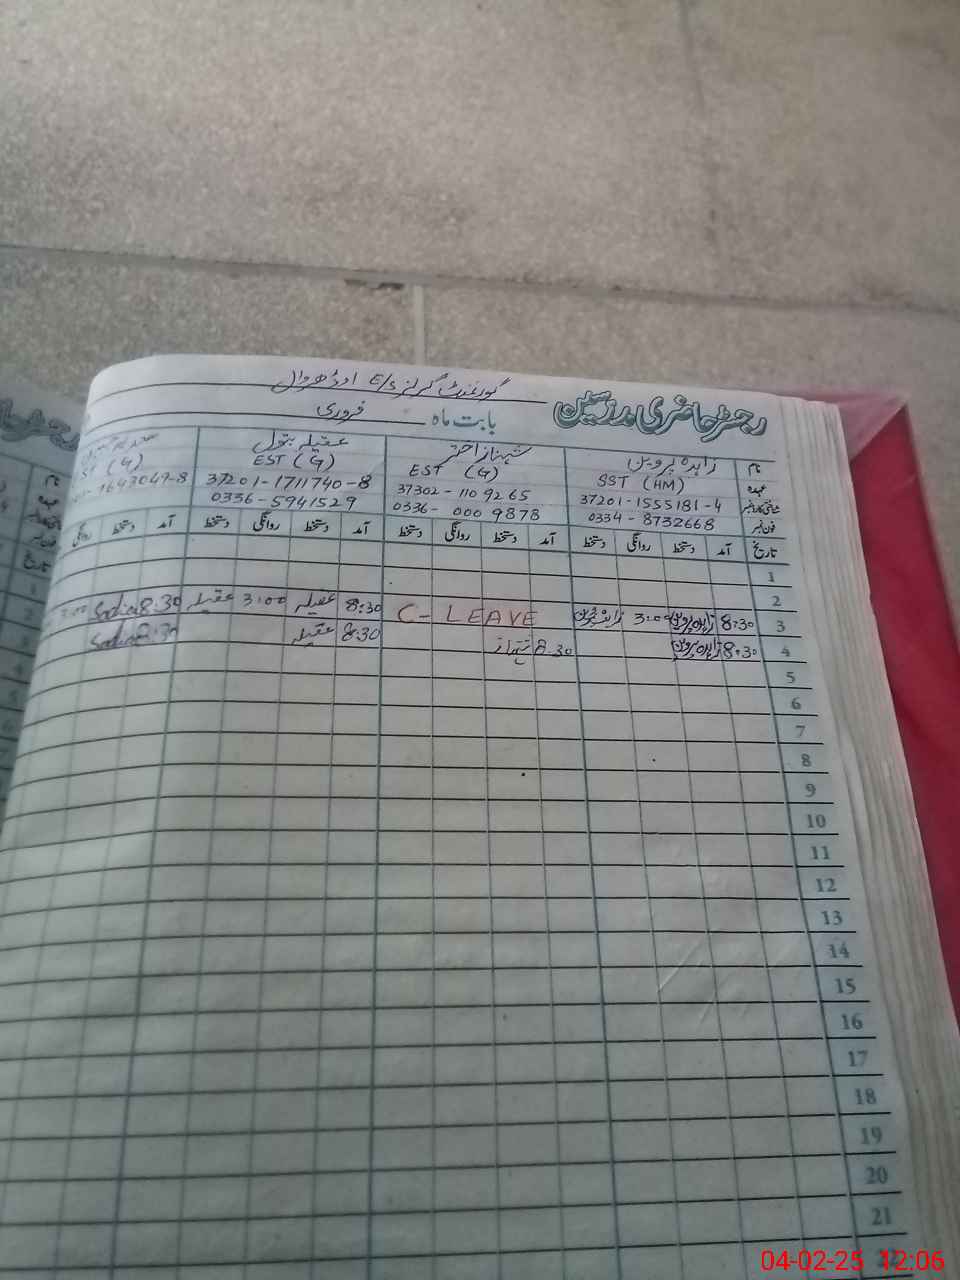 گورنمنٹ گرلز E/S اوڈھروال
رجسٹر حاضری مدرسین
بابت ماہ فروری
نام زاہدہ پروین شہناز اختر عقیلہ بتول
عہدہ SST (HM) EST (G) EST (G) ST (G)
شناختی کارڈ نمبر 37201-1555181-4 37302-1109265 37201-1711740-8 1643049-8
فون نمبر 0334-8732668 0336-0009878 0336-5941529
تاریخ آمد دستخط روانگی دستخط آمد دستخط روانگی دستخط آمد دستخط روانگی دستخط آمد دستخط روانگی
1
2
3 8:30 زاہدہ پروین 3:00 زاہدہ پروین C-LEAVE 8:30 عقیلہ 3:00 عقیلہ 8:30 Sadia 3:00
4 8:30 زاہدہ پروین 8:30 شہناز 8:30 عقیلہ 8:30 Sadia
5
6
7
8
9
10
11
12
13
14
15
16
17
18
19
20
21
22
04-02-25 12:06